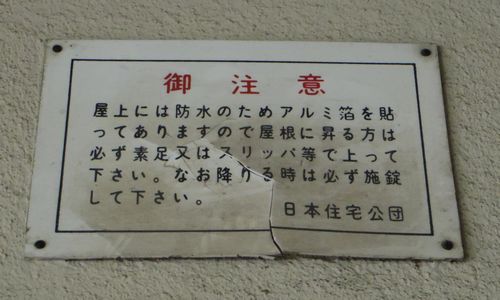 御注意
屋上には防水のためアルミ箔を貼
ってありますので屋根に昇る方は
必ず素足又はスリッパ等で上って
下さい。なお降りる時は必ず施錠
して下さい。
日本住宅公団